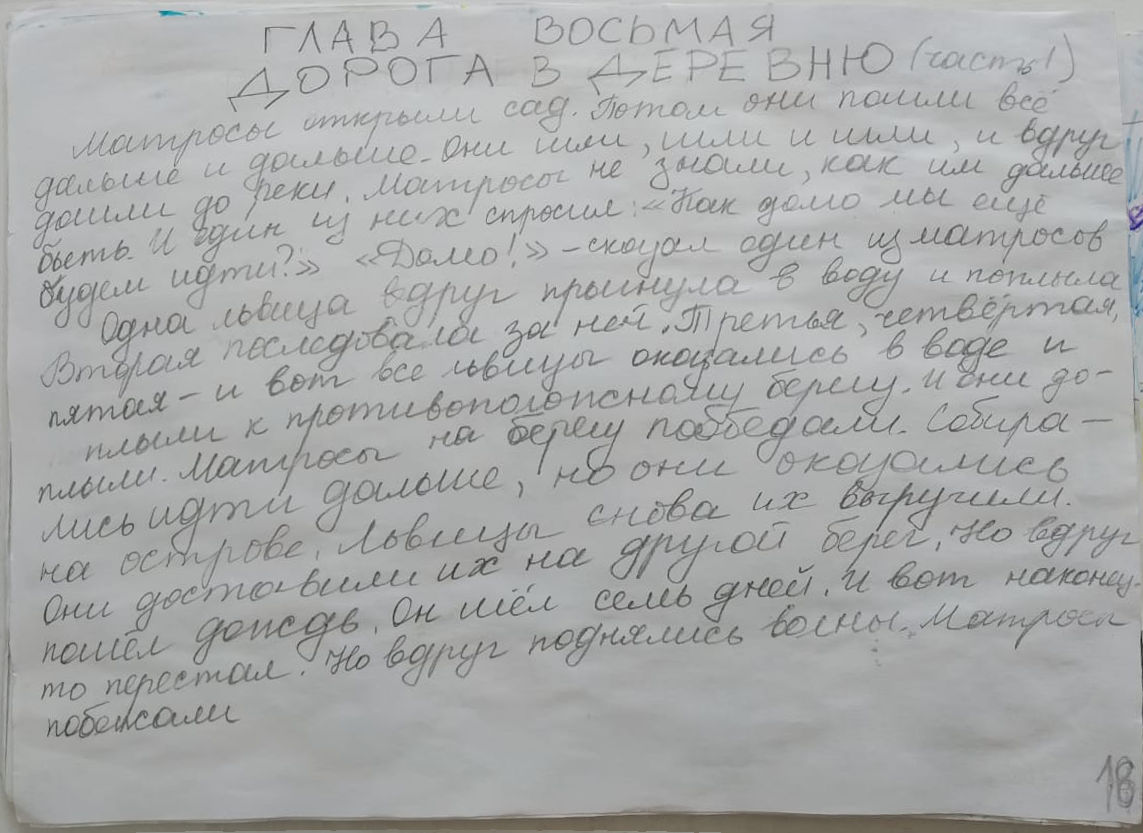 ГЛАВА ВОСЬМАЯ
ДОРОГА В ДЕРЕВНЮ (часть 1)
Матросы открыли сад. Потом они пошли всё
дальше и дальше. Они шли, шли и шли, и вдруг
дошли до реки. Матросы не знали, как им дальше
быть. И один из них спросил: «Как долго мы ещё
будем идти?» «Долго!» – сказал один из матросов
Одна львица вдруг прыгнула в воду и поплыла
Вторая последовала за ней. Третья, четвёртая,
пятая – и вот все львицы оказались в воде и
плыли к противоположному берегу. И они до-
плыли. Матросы на берегу побведали. Собира-
лись идти дальше, но они оказались
на острове. Львицы снова их выручили.
Они доставили их на другой берег. Но вдруг
пошёл дождь. Он шёл семь дней. И вот наконец-
то перестал. Но вдруг поднялись волны. Матросы
побежали
18